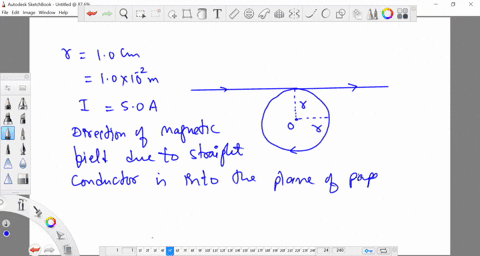 Autodesk SketchBook - Untitled @ 87.6%
File Edit Image Window Help
r = 1.0 cm
= 1.0 x 10⁻² m
I = 5.0 A
r
O
r
Direction of magnetic
field due to straight
conductor is into the plane of pape